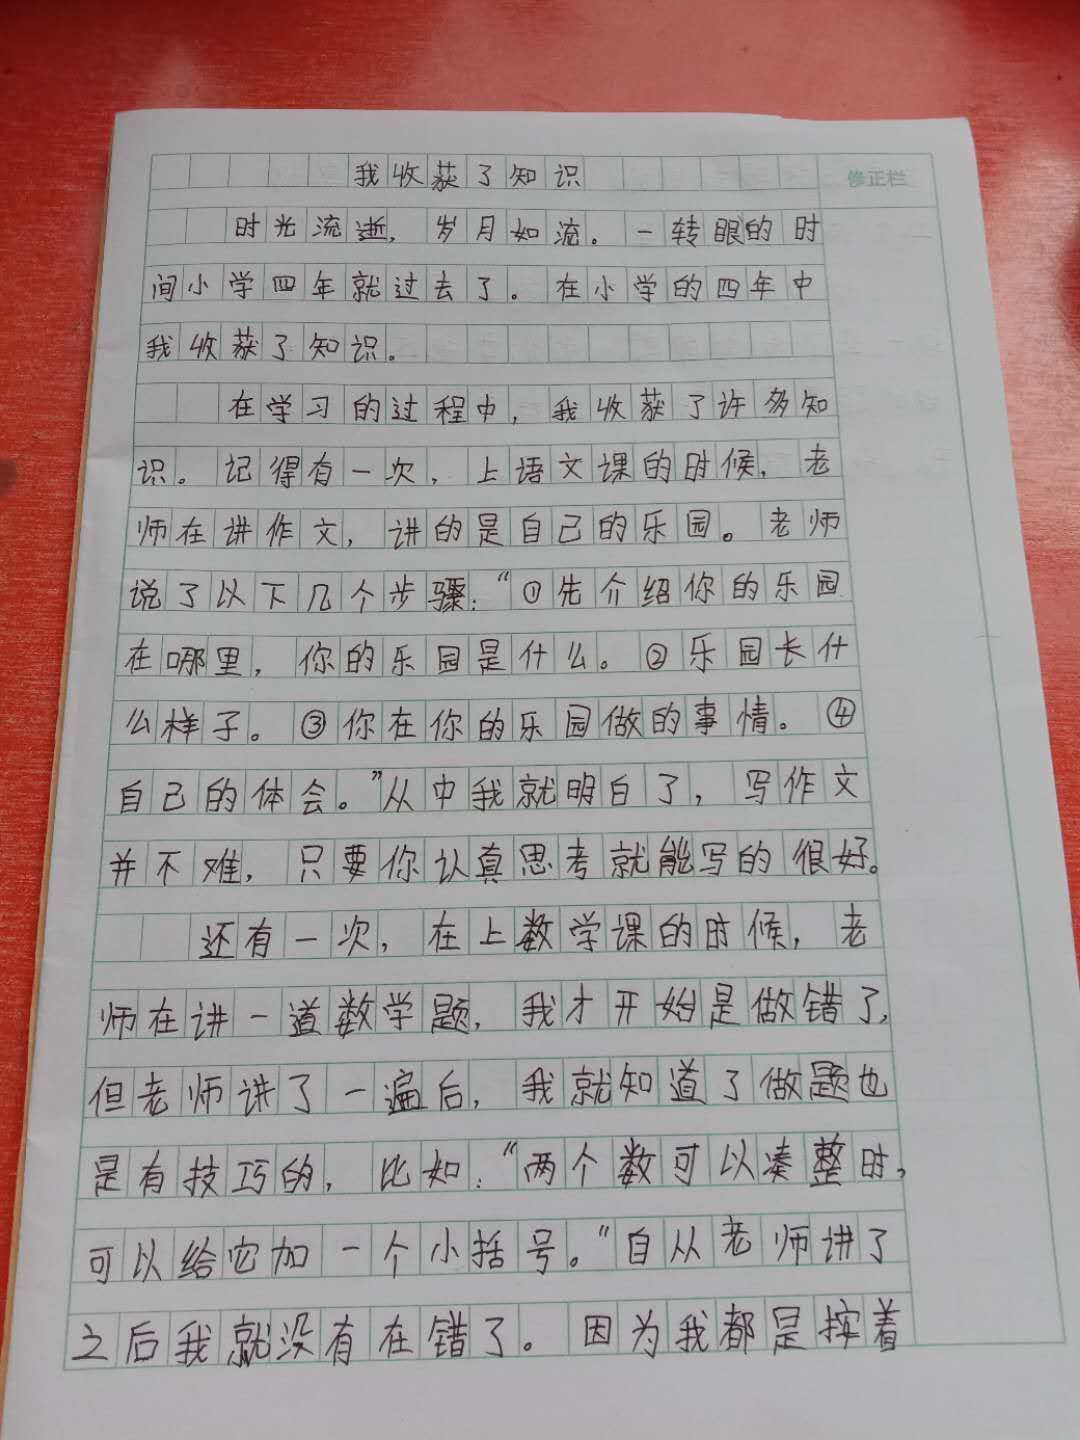 我收获了知识
修正栏
时光流逝，岁月如流。一转眼的时
间小学四年就过去了。在小学的四年中
我收获了知识。
在学习的过程中，我收获了许多知
识。记得有一次，上语文课的时候，老
师在讲作文，讲的是自己的乐园。老师
说了以下几个步骤：“①先介绍你的乐园
在哪里，你的乐园是什么。②乐园长什
么样子。③你在你的乐园做的事情。④
自己的体会。”从中我就明白了，写作文
并不难，只要你认真思考就能写的很好。
还有一次，在上数学课的时候，老
师在讲一道数学题，我才开始是做错了，
但老师讲了一遍后，我就知道了做题也
是有技巧的，比如：“两个数可以凑整时，
可以给它加一个小括号。”自从老师讲了
之后我就没有在错了。因为我都是按着